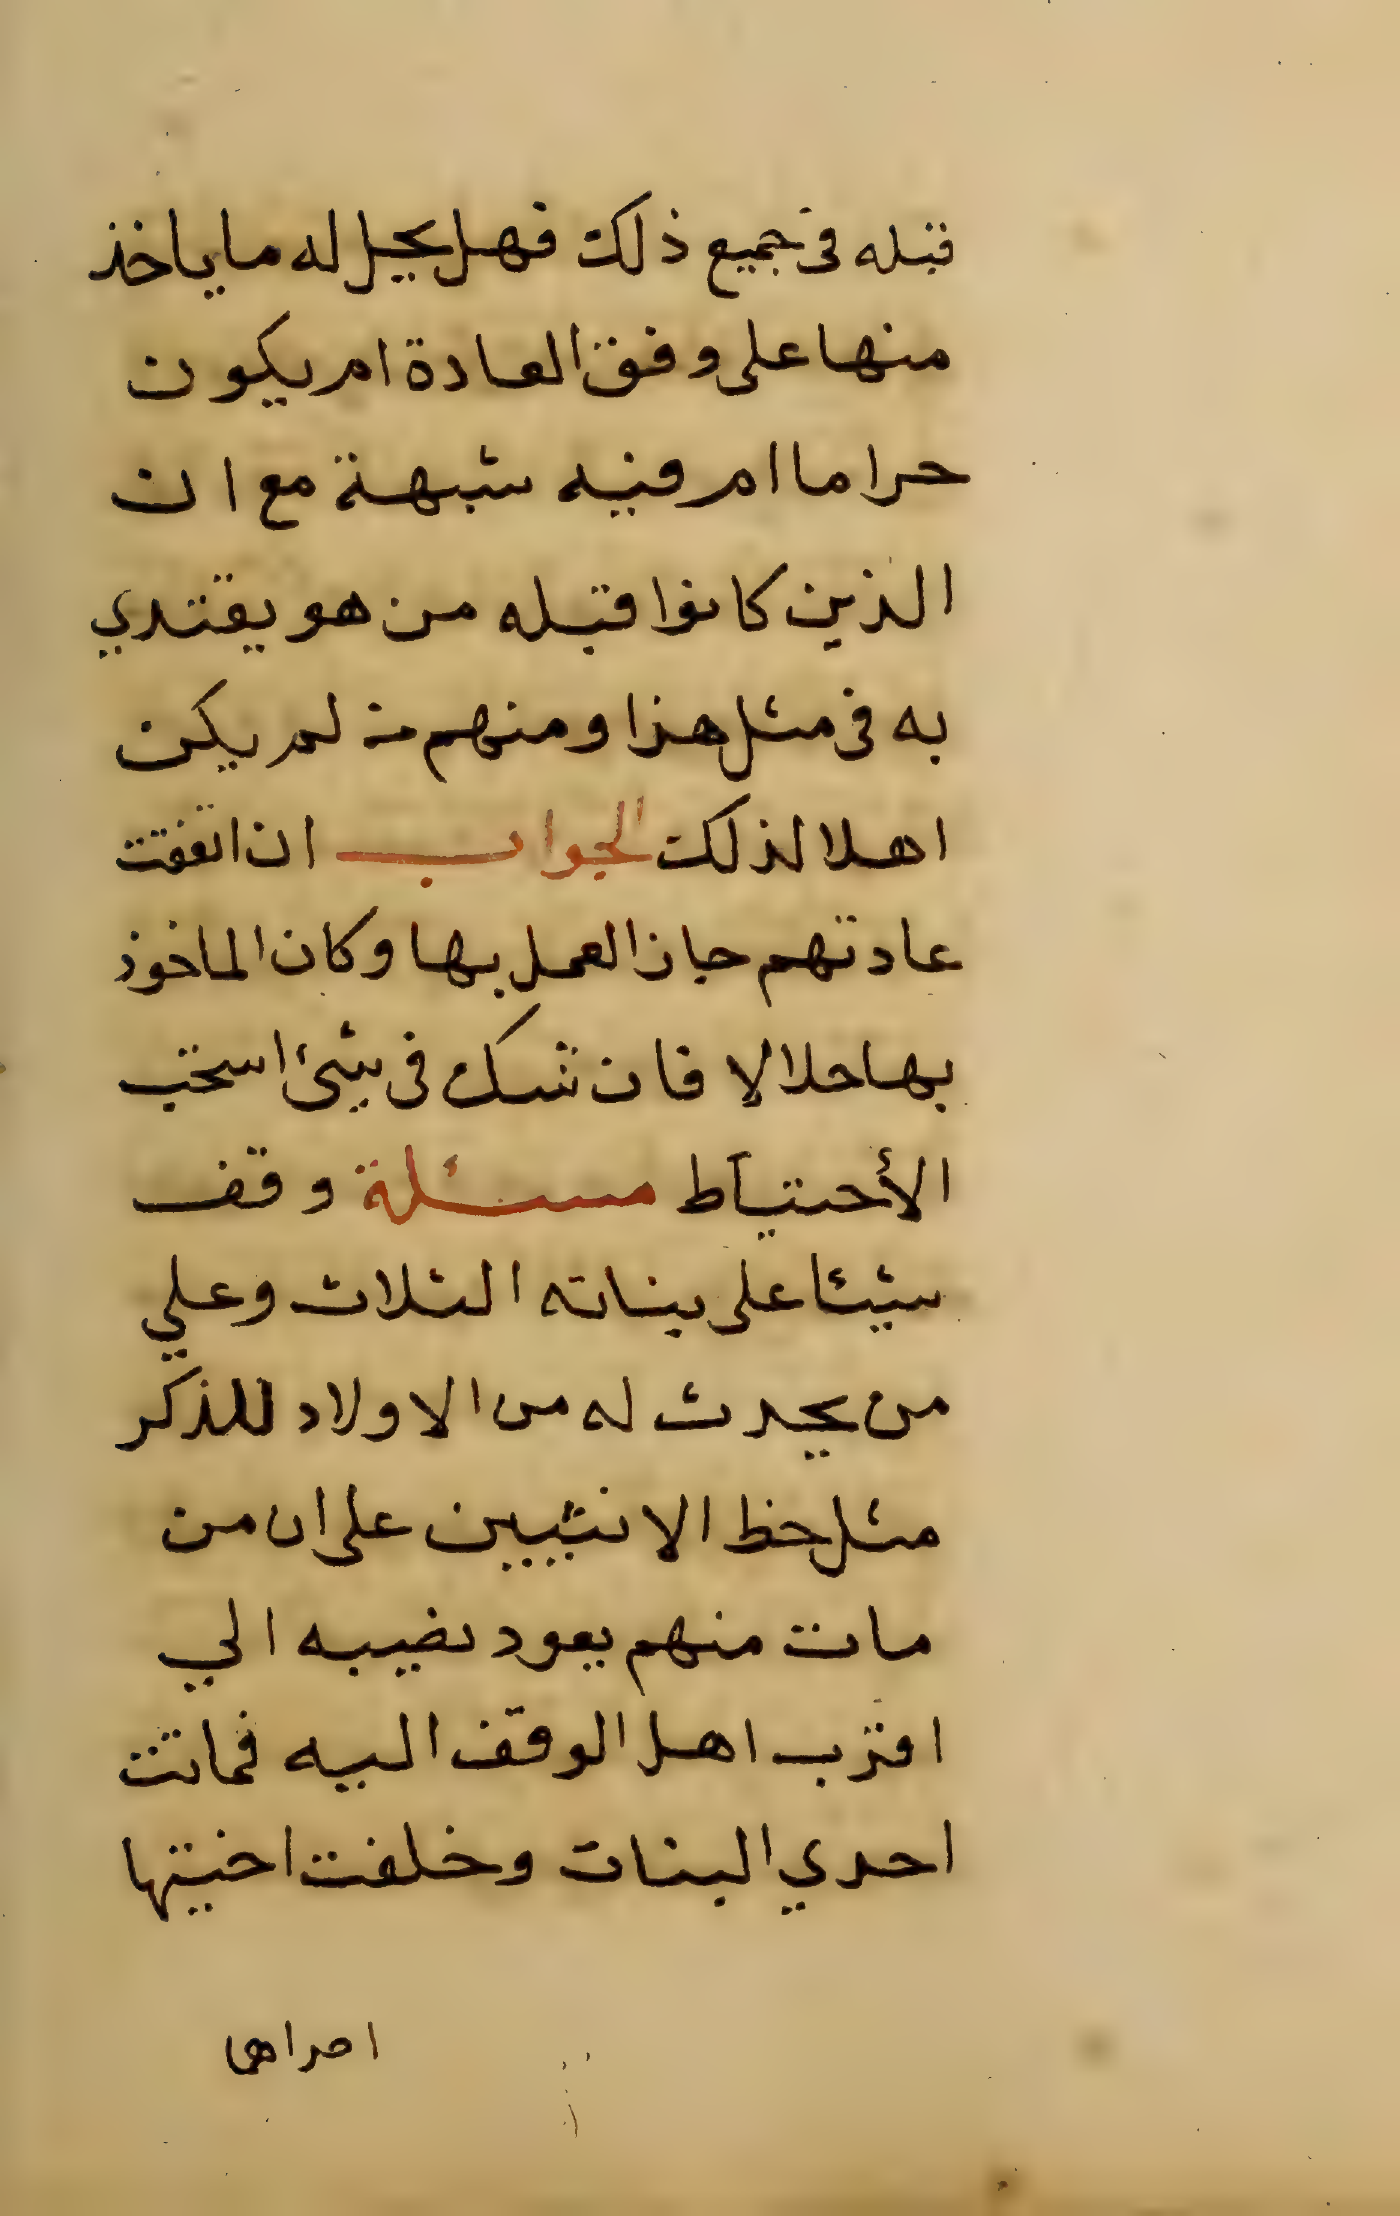 قبله في جميع ذلك فهل يحل له ما ياخذ
منها على وفق العادة ام يكون
حراما ام فيه شبهة مع ان
الذين كانوا قبله من هو يقتدي
به في مثل هذا ومنهم من لم يكن
اهلا لذلك الجواب ان اتفقت
عادتهم جاز العمل بها وكان الماخوذ
بها حلالا فان شك في شيئ استحب
الأحتياط مسئلة وقف
شيئا على بناته الثلاث وعلي
من يحدث له من الاولاد للذكر
مثل حظ الانثيين على ان من
مات منهم يعود نصيبه الي
اقرب اهل الوقف اليه فماتت
احدي البنات وخلفت اختيها
احداهما